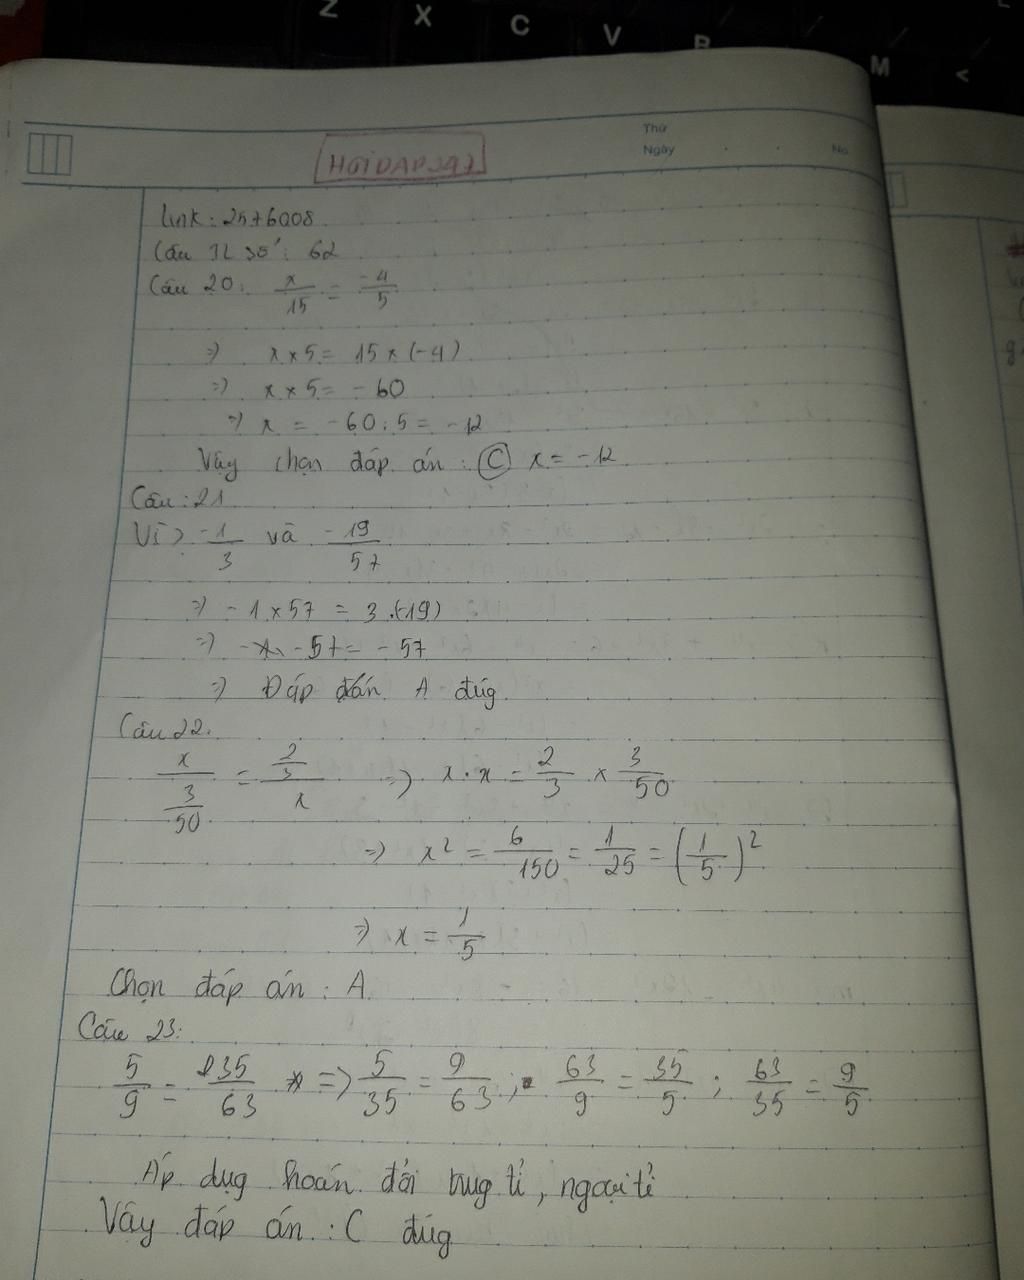 Z X C V B M <
Thứ
Ngày
No
HOIDAP247
link: 2576008
Câu 20: x/15 = -4/5
=> x × 5 = 15 × (-4)
=> x × 5 = -60
=> x = -60 : 5 = -12
Vậy chọn đáp án : C x = -12
Câu : 21
Vì > -1/3 và -19/57
=> -1 × 57 = 3 . (-19)
=> -57 = -57
=> Đáp án A đúg.
Câu 22:
x/(3/50) = (2/3)/x => x . x = 2/3 × 3/50
=> x² = 6/150 = 1/25 = (1/5)²
=> x = 1/5
Chọn đáp án : A.
Câu 23:
5/9 = 35/63 => 5/35 = 9/63 ; 63/9 = 35/5 ; 63/35 = 9/5
Áp dụg hoán đổi trug tỉ, ngoại tỉ
Vậy đáp án : C đúg